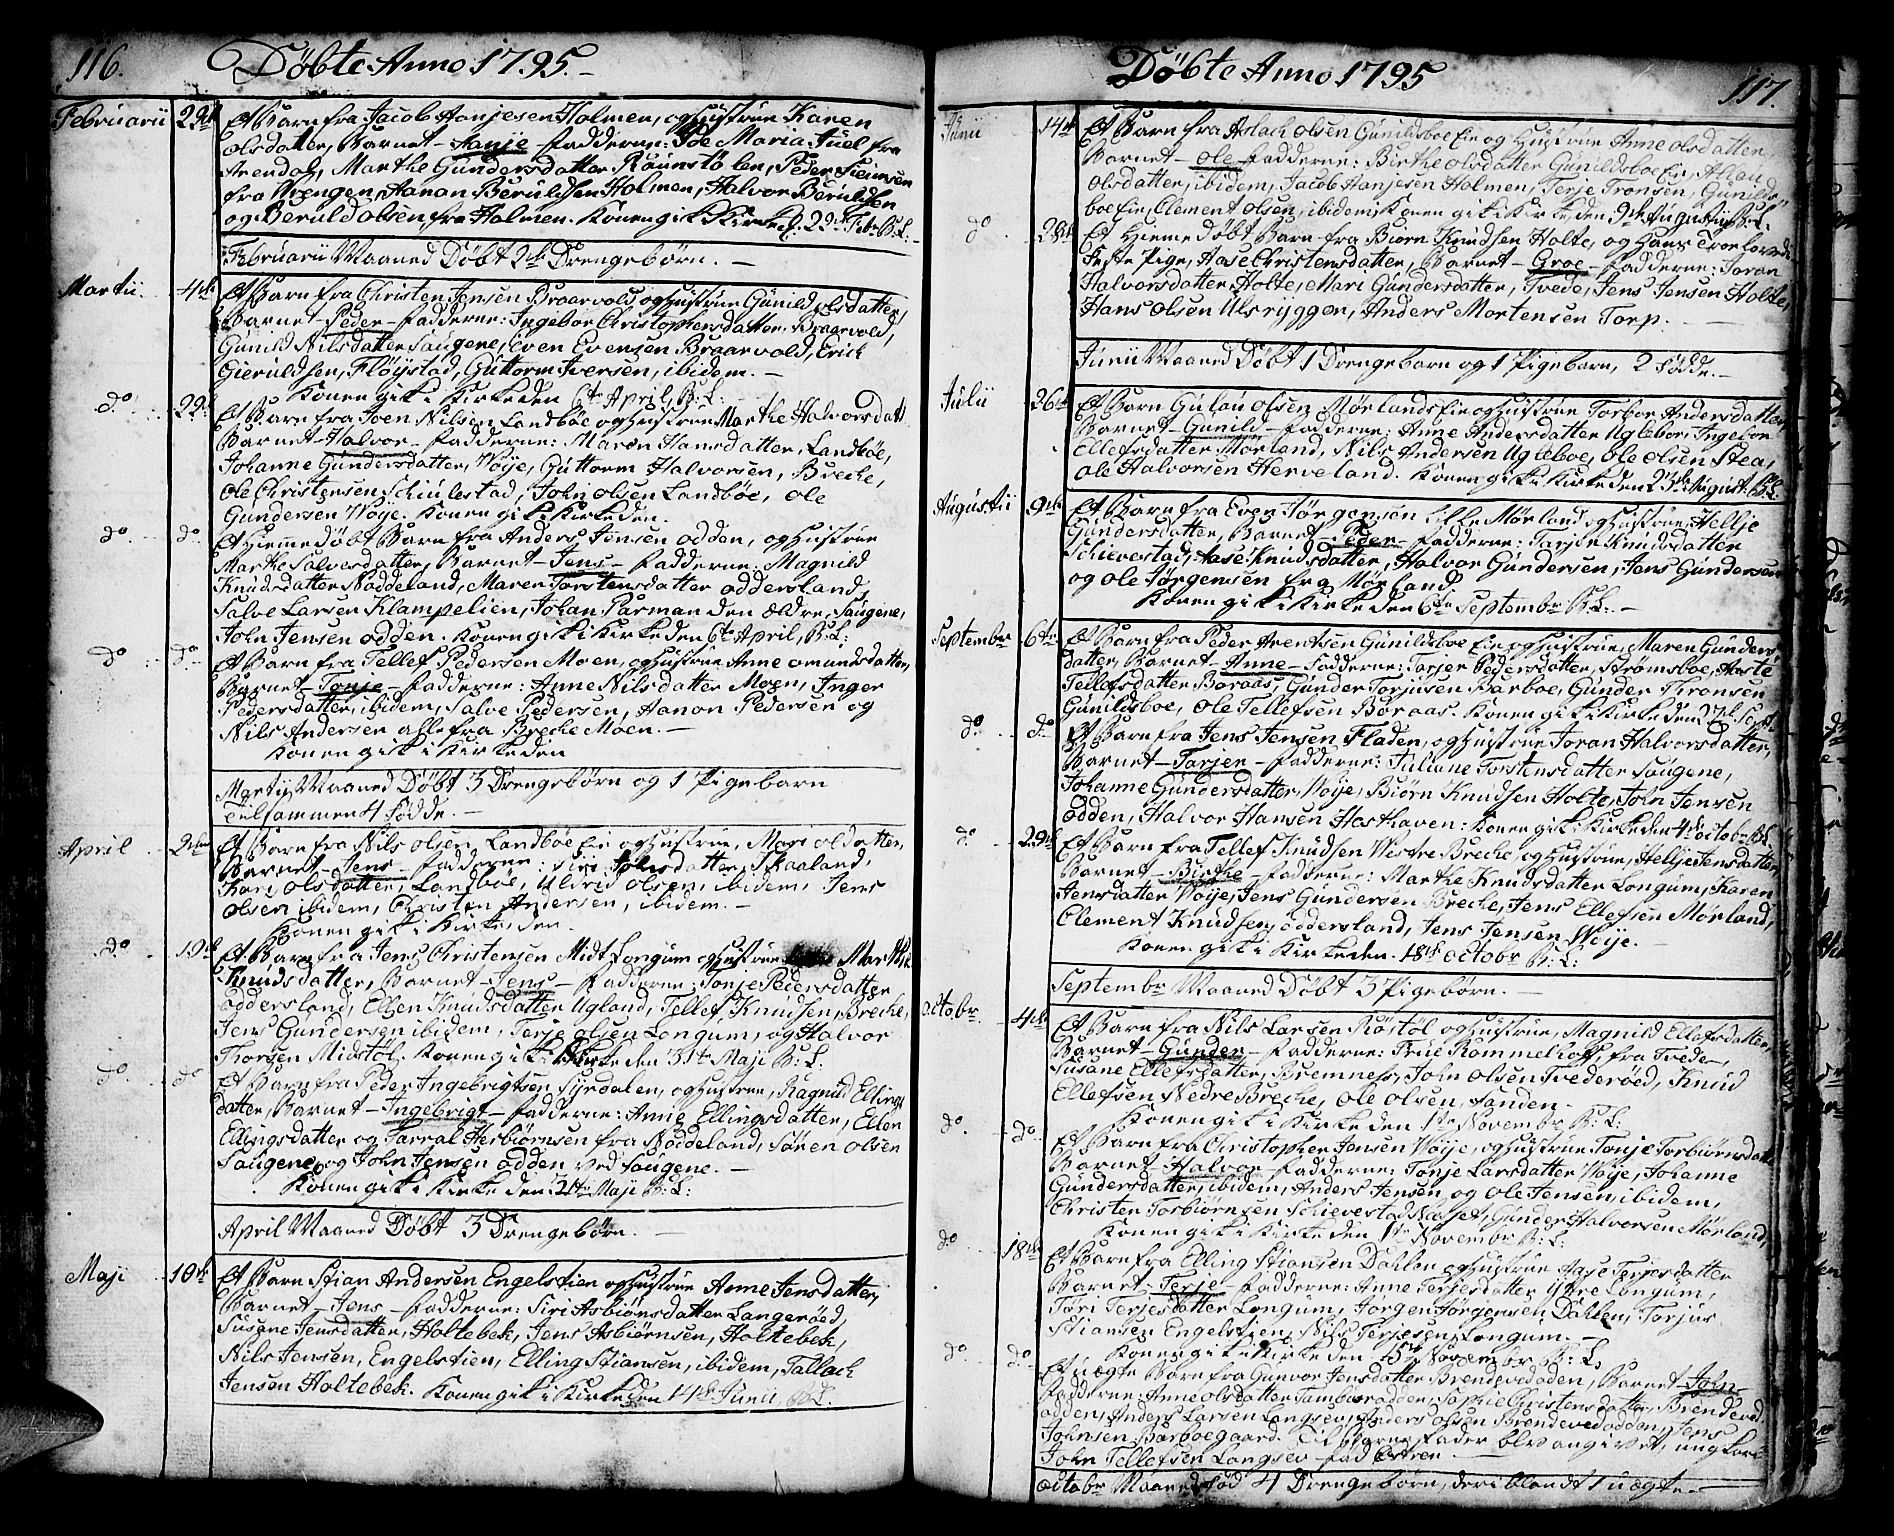 116.
Döbte Anno 1795.
Februarii 22de Et Barn fra Jacob Hanjesen Holmen, og Hustrue Karen
Olsdatter, Barnet - Hanje - Fadderne: Soe Maria Juel fra
Arendal, Marthe Gundersdatter Röinstölen, Peder Siversen
fra Vrengen, Hanon Beruldsen Holmen, Halvor Beruldsen
og Beruld Olsen fra Holmen. Konen gik i Kirke d. 22de Febr. B:L:
Februarii Maaned Döbt 2de Drengebörn.
Martii. 4de Et Barn fra Christen Jensen Braarvold og Hustrue Gunild Olsdatter,
Barnet - Peder - Fadderne: Ingebor Christophersdatter, Braarvold,
Gunild Nilsdatter Saugene, Even Evensen Braarvold, Erich
Gieruldsen, Flöystad, Guttorm Iversen, ibidem.
Konen gik i Kirke den 6te April, B:L:
do. 22. Et Barn fra Joen Nilsen Landböe og Hustrue Marthe Halvorsdatt
Barnet - Halvor - Fadderne: Maren Hansdatter, Landböe,
Johanne Gundersdatter, Vöye, Guttorm Halvorsen, Breche,
Ole Christensen Schiulestad, John Olsen Landböe, Ole
Gundersen Vöye. Konen gik i Kirke den.
do. do. Et Hiemmedöbt Barn fra Anders Jensen Odden, og Hustrue
Marthe Salvesdatter, Barnet - Jens - Fadderne: Magnild
Knudsdatter Noddeland, Maren Torstensdatter Oddersland,
Salve Larsen Klampelien, Johan Parman den ældre, Saugene,
John Jensen Odden. Konen gik i Kirke den 6te April, B:L:
do do Et Barn fra Tellef Pedersen Moen, og Hustrue Anne Omundsdatter,
Barnet - Tonje - Fadderne: Anne Nilsdatter Moen, Inger
Pedersdatter, ibidem, Salve Pedersen, Hanon Pedersen og
Nils Andersen alle fra Breche Moen.
Konen gik i Kirke den
Martii Maaned Döbt 3 Drengebörn og 1 Pigebarn
tilsammen 4 Födde.
April 3die Et Barn fra Nils Olsen, Landböe Eie og Hustrue, Mari Olsdatter,
Barnet - Jens - Fadderne: Siri datter, Skaaland,
Kari Olsdatter, Landböe, Uldrid Olsen, ibidem, Jens
Olsen ibidem, Christen Andersen, ibidem.
Konen gik i Kirke den.
do. 19de Et Barn fra Jens Christensen Midt Longum og Hustrue Marthe
Knudsdatter, Barnet - Jens - Fadderne: Tonje Pedersdatter
Oddersland, Ellen Knudsdatter Ugland, Tellef Knudsen, Breche,
Jens Gundersen ibidem, Terje Olsen Longum, og Halvor
Thorsen Midstöl. Konen gik i Kirke den 31te Maji B:L:
do. do Et Barn fra Peder Ingebrigtsen Syrdalen, og Hustrue, Ragnild Ellings
datter, Barnet - Ingebrigt - Fadderne: Anne Ellingsdatter, Ellen
Ellingsdatter og Tarral Herbiörnsen fra Noddeland, Sören Olsen
Saugene, og John Jensen Odden ved Saugene.
Konen gik i Kirke den 21te Maji B:L:
April Maaned Döbt 3 Drengebörn.
Maji 10de Et Barn Stian Andersen Engelstien og Hustrue Anne Jensdatter,
Barnet - Jens - Fadderne: Siri Asbiörnsdatter Langeröed,
Susane Jensdatter, Holtebek, Jens Asbiörnsen, Holtebek,
Nils Jensen, Engelstien, Elling Stiansen, ibidem, Tallach
Jensen Holtebek. Konen gik i Kirke den 14de Junii B:L:
Döbte Anno 1795
117.
Junii 14de Et Barn fra Aslach Olsen Gunildsboe Eie og Hustrue Anne Olsdatter,
Barnet - Ole - Fadderne: Birthe Olsdatter Gunildsboe Eie,
Olsdatter, ibidem, Jacob Hanjesen Holmen, Terje Tronsen, Gunilds
boe Eie, Clement Olsen, ibidem, Konen gik i Kirke den 9de Augustij B:L:
do. 28de Et Hiemedöbt Barn fra Biörn Knudsen Holte, og Hans Trolovede
Feste Pige, Aase Christensdatter, Barnet - Groe - Fadderne: Joran
Halvorsdatter Holte, Mari Gundersdatter, Tvede, Jens Jensen Holte,
Hans Olsen Ulsryggen, Anders Mortensen Torp.
Junii Maaned Döbt 1 Drengebarn og 1 Pigebarn, 2 Födde.
Julii 26de Et Barn Gulau Olsen Mörlands Eie og Hustrue Torbor Andersdatter,
Barnet - Gunild - Fadderne: Anne Andersdatter Ugleboe, Ingebor
Ellefsdatter Mörland, Nils Andersen Ugleboe, Ole Olsen Stea,
Ole Halvorsen Herveland. Konen gik i Kirke den 23de August. B:L:
Augustii 9de Et Barn fra Even Jörgensen Lille Mörland og Hustrue, Hellje
Gundersdatter, Barnet - Peder - Fadderne: Tarjer Knudsdatter
Schievestad, Aase Knudsdatter, Halvor Gundersen, Jens Gundersen
og Ole Jörgensen fra Mörland.
Konen gik i Kirke den 6te Septembr B:L:
Septembr 6te Et Barn fra Peder Arentsen Gunildsboe Eie og Hustrue, Maren Gunders
datter, Barnet - Anne - Fadderne: Tarjer Pedersdatter, Strömsboe, Aaste
Tellefsdatter Boraas, Gunder Torjusen Barboe, Gunder Thronsen
Gunildsboe, Ole Tellefsen Boraas. Konen gik i Kirke den 27de Sept.
do. do. Et Barn fra Jens Jensen Fladen, og Hustrue Joran Halvorsdatter,
Barnet - Tarjer - Fadderne: Juliane Torstensdatter Saugene,
Johanne Gundersdatter, Vöye, Biörn Knudsen Holte, John Jensen
Odden, Halvor Hansen Hasthaven: Konen gik i Kirke den 4de Octobr B:L:
do. 29de Et Barn fra Tellef Knudsen Vestre Breche, og Hustrue, Hellje Jensdatter,
Barnet - Birthe - Fadderne: Marthe Knudsdatter Longum, Karen
Jensdatter Vöye, Jens Gundersen Breche, Jens Ellefsen Mörland,
Clement Knudsen, Oddersland, Jens Jensen Vöye.
Konen gik i Kirke den. 18de Octobr B:L:
Septembr Maaned Döbt 3 Pigebörn.
Octobr. 4de Et Barn fra Nils Larsen Röstöl og Hustrue, Magnild Ellefsdatter,
Barnet - Gunder - Fadderne: Frue Rommelhoff, fra Tvede,
Susane Ellefsdatter, Bremnes, John Olsen Tvederöed, Knud
Ellefsen Nedre Breche, Ole Olsen, Sanden.
Konen gik i Kirke den 1te Novembr B:L:
do. do. Et Barn fra Christopher Jensen Vöye, og Hustrue Tonje Torbiörnsdatt
Barnet - Halvor - Fadderne: Tonje Larsdatter Vöye, Johanne
Gundersdatter, ibidem, Anders Jensen, og Ole Jensen, ibidem,
Christen Torbiörnsen Schievestad Næsset, Gunder Halvorsen Mörland,
Konen gik i Kirke den 1te Novembr B:L:
do 18de Et Barn fra Elling Stiansen Dahlen og Hustrue Aase Terjesdatter
Barnet - Terje - Fadderne: Anne Terjesdatter Yttre Longum,
Töri Terjesdatter Longum, Jörgen Jörgensen Dahlen, Torjus
Stiansen Engelstien, Nils Terjesen, Longum.
Konen gik i Kirke den 15de Novembr B:L:
do. do. Et uægte Barn fra Gunvor Jensdatter Brendevedodden, Barnet - John
Fadderne: Anne Olsdatter Tambiorodden, Sophie Christensdatter, Brendeved
odden, Anders Larsen Longsev, Anders Olsen Brendevedodden, Jens
Johnsen Barboegaard. Til Barne Fader blev angivet, ungkarl
John Tellefsen Longsev
Octobr Maaned Föd 4 Drengebörn, deriblandt 1 uægte.